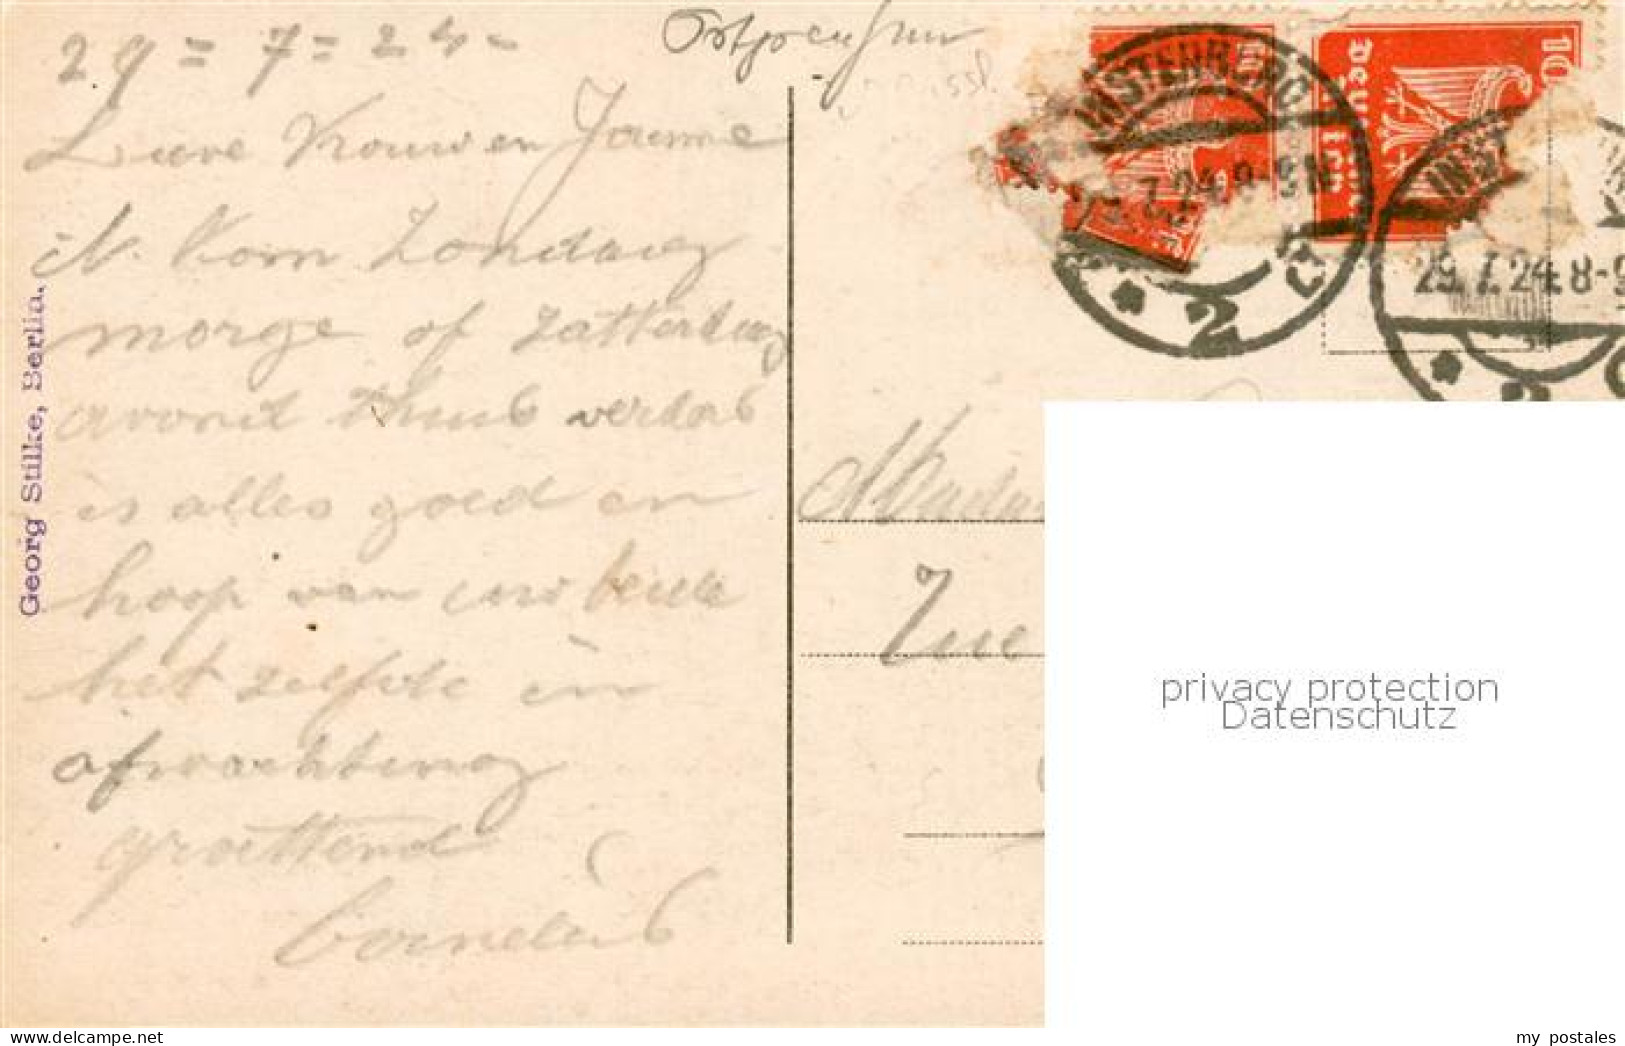 29 = 7 = 24 -
Lieve Vrouw en
ik kom Zondag
morge of Zatterdag
avond thuis verders
is alles goed en
hoop van uw beide
het zelfde in
afwachting
groettend
Cornelis
Georg Stilke, Berlin.
Ostpreussen
INSTERBURG
7.24.8-9N
* 2 c
10
Deutsches Reich
INST
29.7.24.8-9
Madam
privacy protection
Datenschutz
my postales